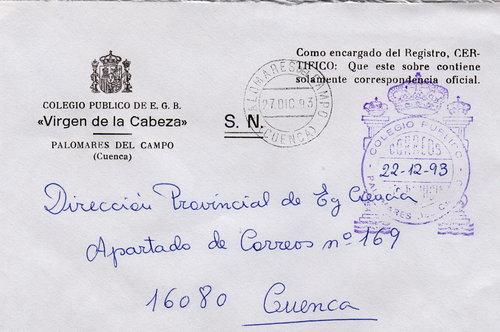 Como encargado del Registro, CER-
TIFICO: Que este sobre contiene
solamente correspondencia oficial.
COLEGIO PUBLICO DE E. G. B.
«Virgen de la Cabeza»
PALOMARES DEL CAMPO
(Cuenca)
S. N.
PALOMARES DEL CAMPO
27 DIC 93
(CUENCA)
COLEGIO PUBLICO
CORREOS
22-12-93
Dirección Provincial de Eg Ciencia
Apartado de Correos nº 169
16080 Cuenca